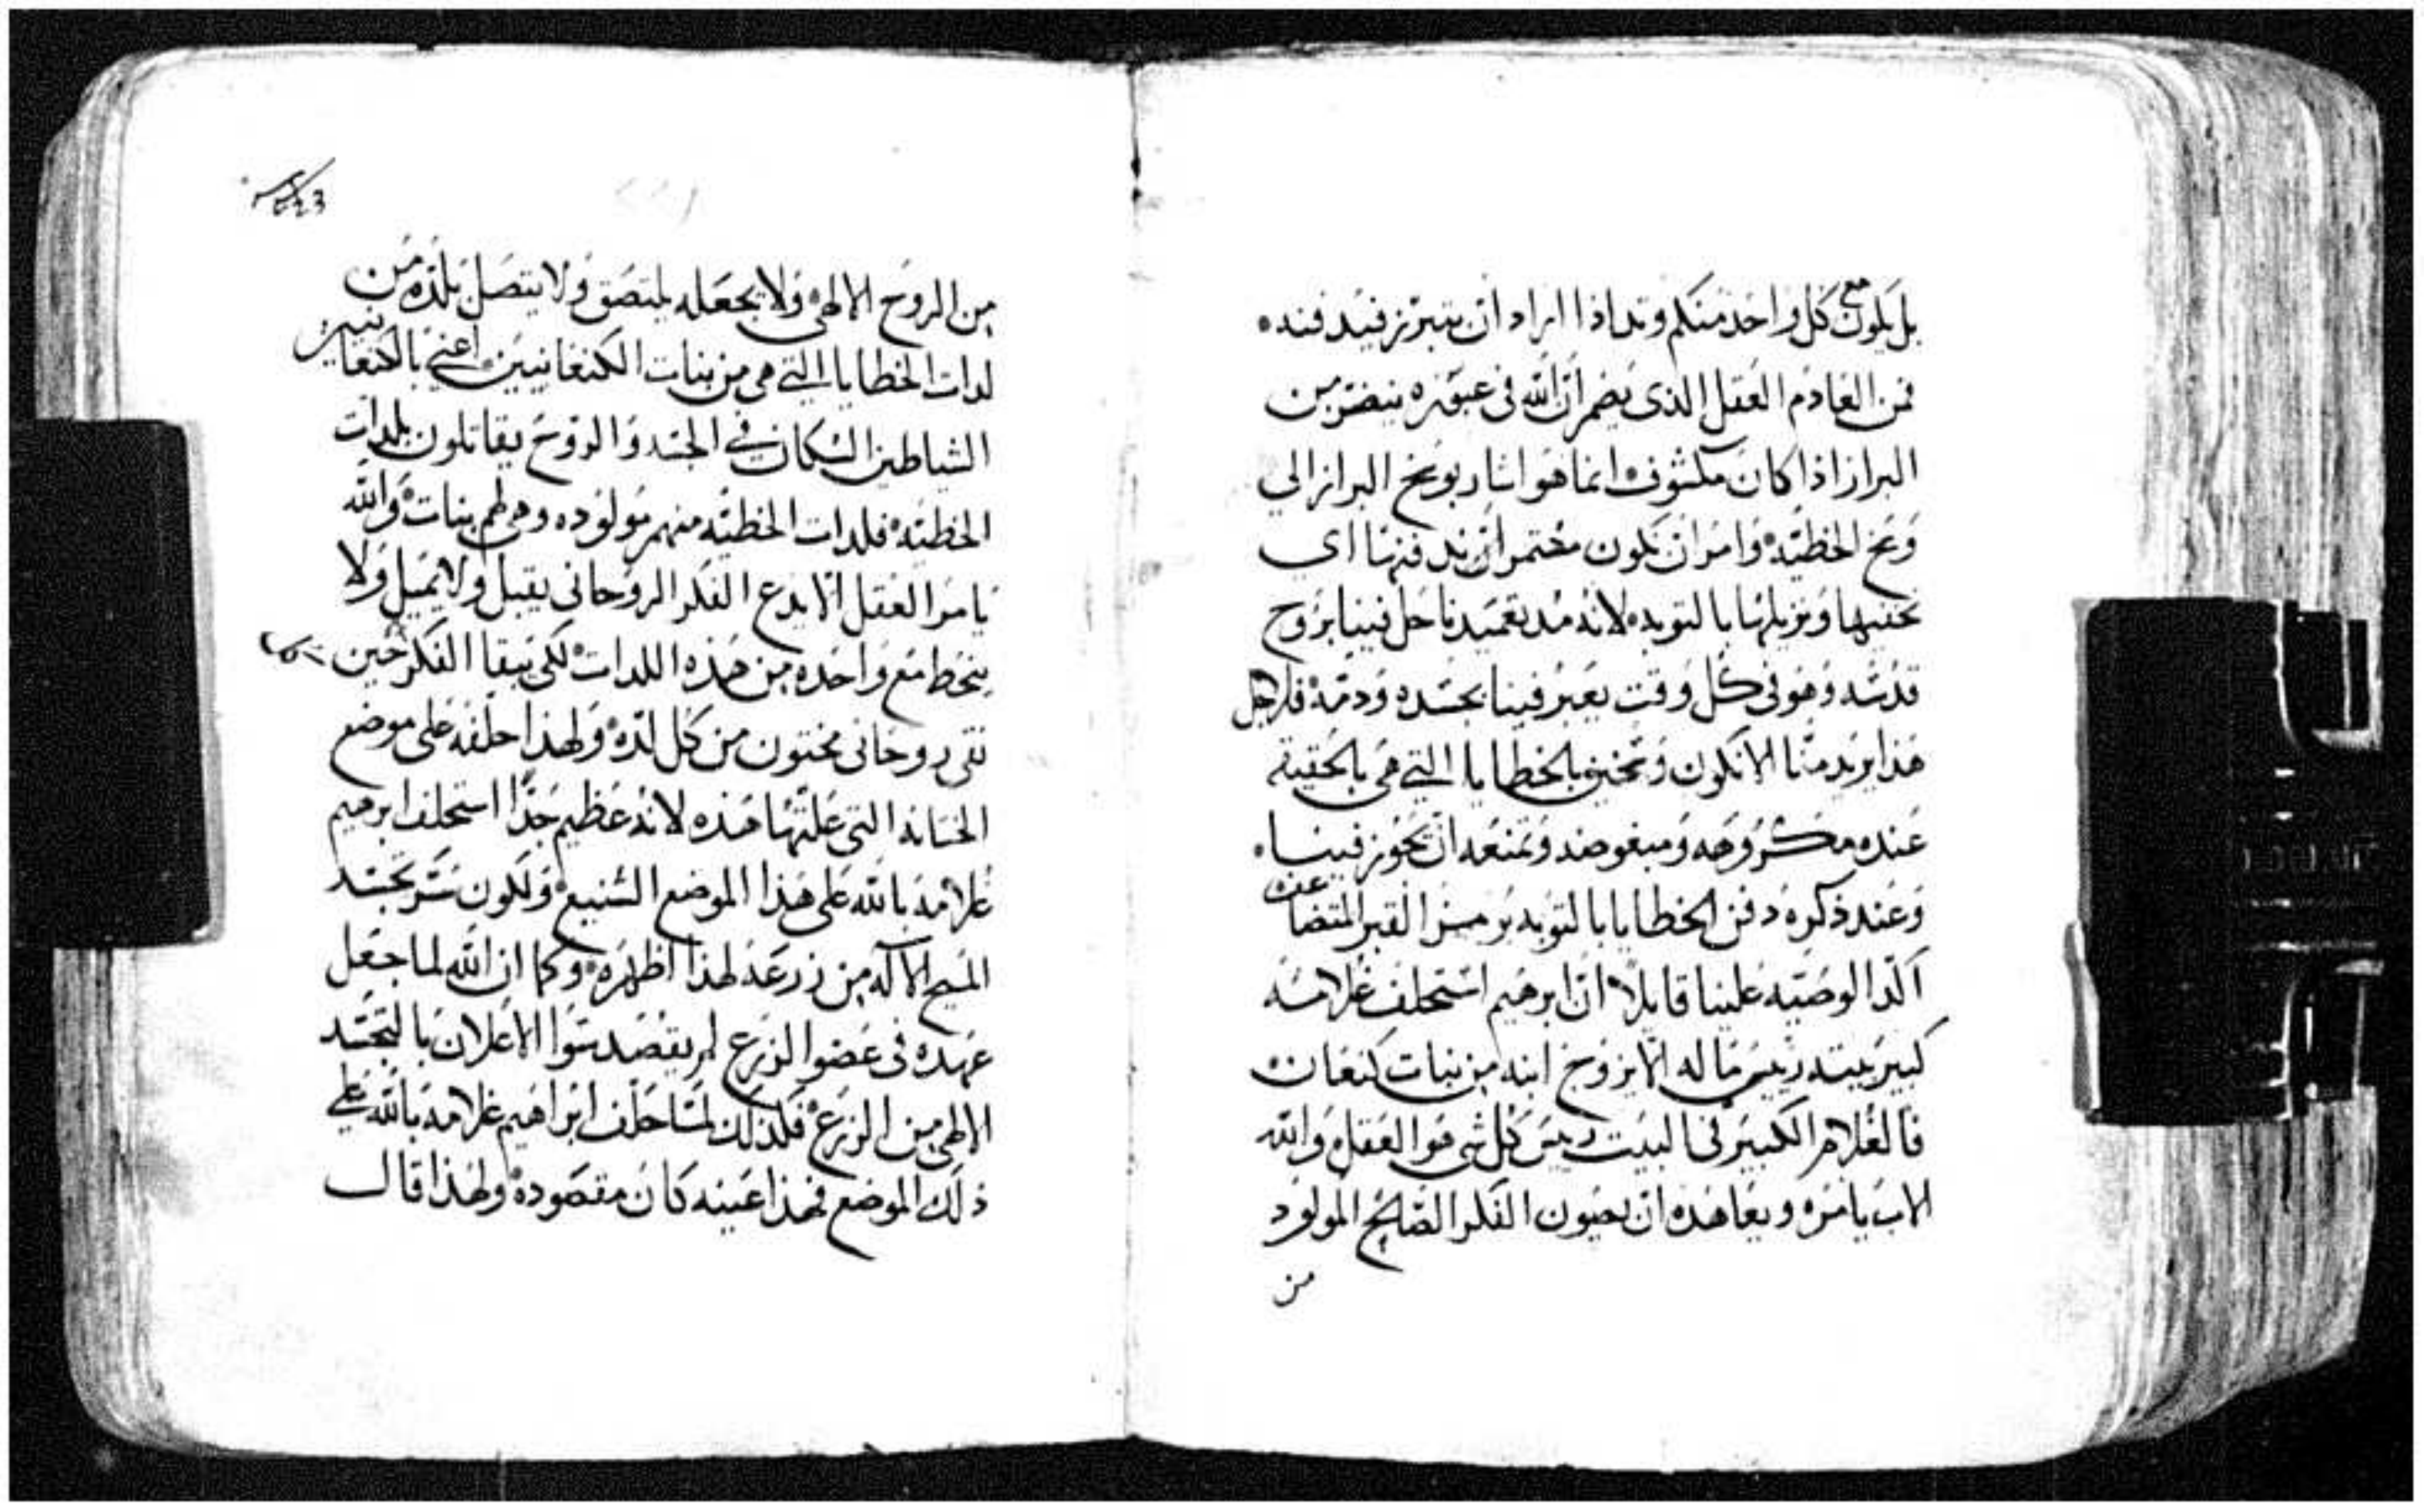 بل يكون مع كل واحد منكم وتد اذا اراد ان يتبرز فيدفنه
فمن العادم العقل الذي يضمر ان الله في عبوره يتضرر من
البراز اذا كان مكشوف انما هو اشار بوبخ البراز الي
وبخ الخطيه وامر ان نكون مهتمين ان ندفنها اي
نخفيها ونزيلها بالتوبه لانه مند تعميدنا حل فينا بروح
قدسه وهو في كل وقت يعبر فينا بجسده ودمه فلاجل
هذا يريد منا الا نكون وسخين بالخطايا التي هي بالحقيقه
عنده مكروهه ومبغوضه وتمنعه ان يجوز فينا
وعند ذكره دفن الخطايا بالتوبه برمز القبر المتضاعف
اكد الوصيه علينا قايلا ان ابرهيم استحلف غلامه
كبير بيته رييس ماله الا يزوج ابنه من بنات كنعان
فالغلام الكبير في البيت رييس كل شي هو العقل والله
الاب يامره ويعاهده ان يصون الفكر الصالح المولود
من
من الروح الالهي ولا يجعله يلتصق ولا يتصل بلذه من
لدات الخطايا التي هي من بنات الكنعانيين اعني بالكنعانيين
الشياطين السكان في الجسد والروح يقاتلون بلدات
الخطيه فلدات الخطيه منهم مولوده وهي لهم بنات والله
يامر العقل الا يدع الفكر الروحاني يقبل ولا يميل ولا
ينحط مع واحده من هذه اللدات لكي يبقا الفكر حين
نقي روحاني مختون من كل لذه ولهذا حلفه على موضع
الختانه التي علتها هذه لانه عظيم جدا استحلف ابرهيم
غلامه بالله على هذا الموضع الشنيع ولكون سر تجسد
المسيح الاله من زرعه لهذا اظهره وكما ان الله لما جعل
عهده في عضوا الزرع لم يقصد سوا الاعلان بالتجسد
الالهي من الزرع فلذلك لما حلف ابراهيم غلامه بالله علي
ذلك الموضع فهذا عينه كان مقصوده ولهذا قال